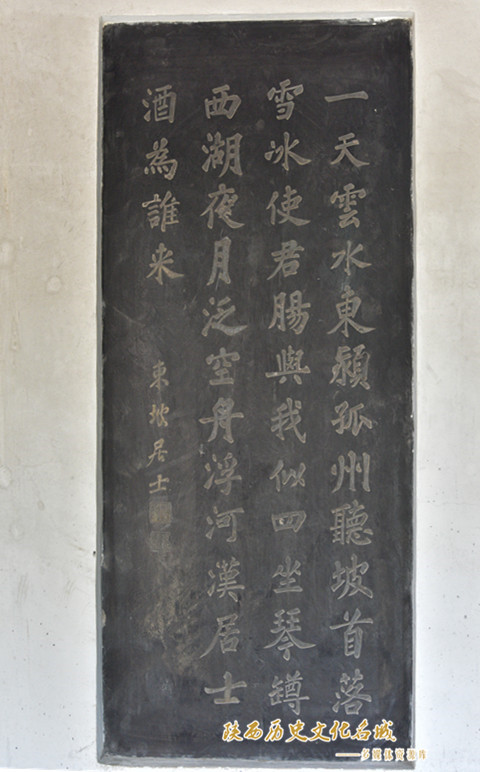 一天雲水東潁孤州聽坡首落
雪冰使君腸與我似四坐琴罇
西湖夜月泛空舟浮河漢居士
酒為誰来
東坡居士
陕西历史文化名城
——多媒体资源库